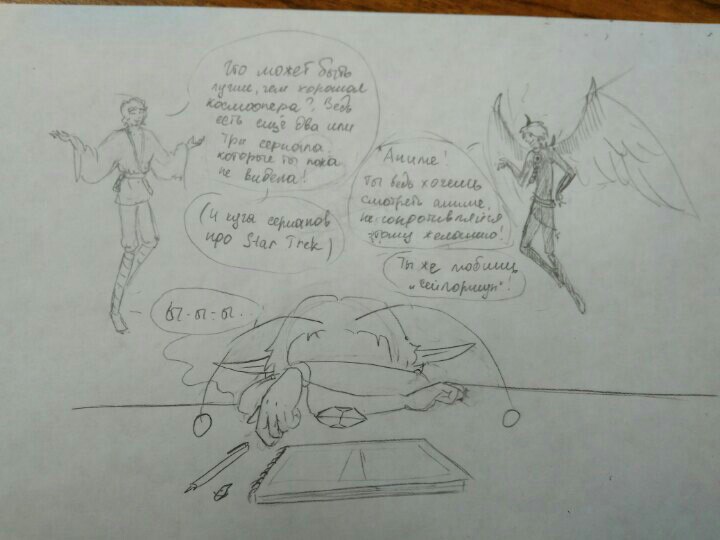 Что может быть
лучше, чем хорошая
космоопера? Ведь
есть ещё два или
три сериала
которые ты пока
не видела!
(И куча сериалов
про Star Trek)
Аниме!
Ты ведь хочешь
смотреть аниме,
не сопротивляйся
этому желанию!
Ты же любишь
"Сейлормун"!
Ы-ы-ы..